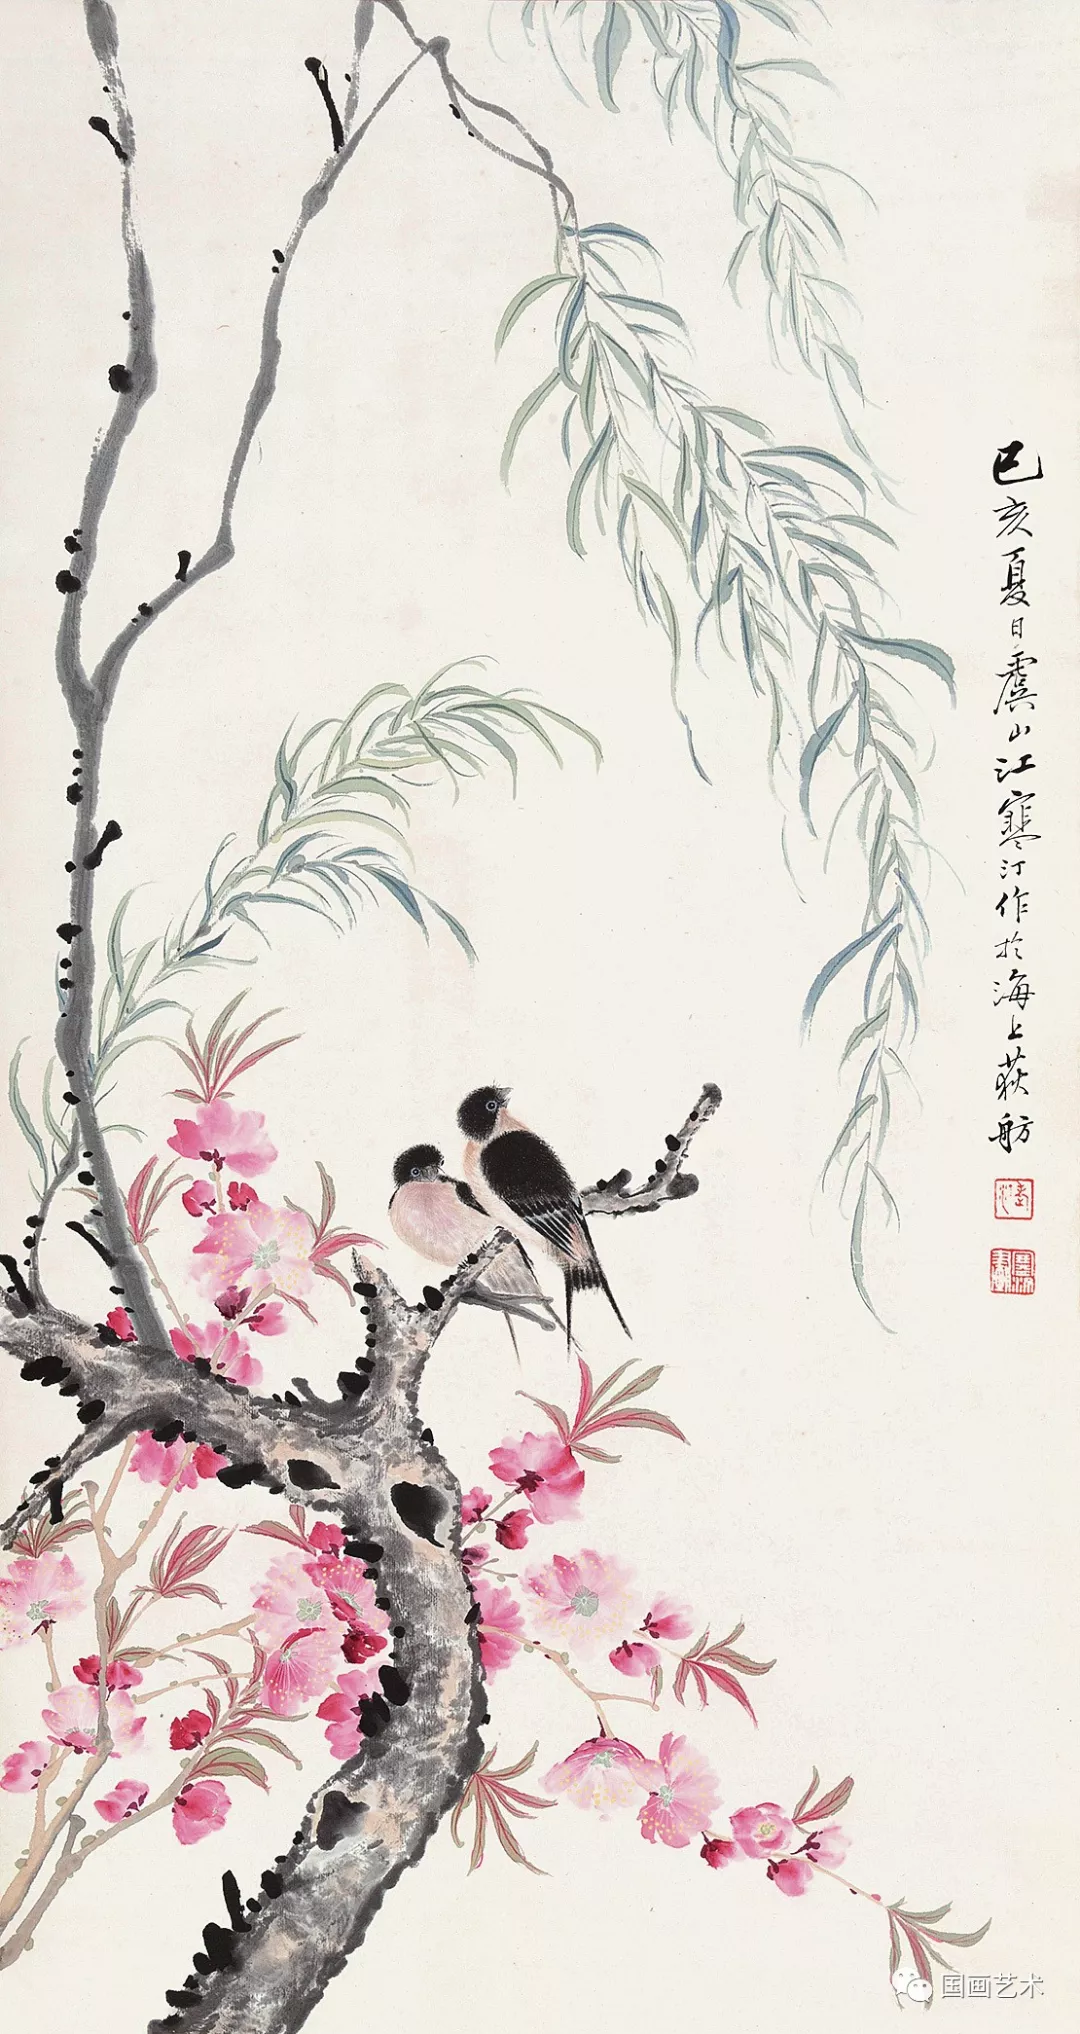 己亥夏日虞山江寒汀作於海上荻舫
国画艺术